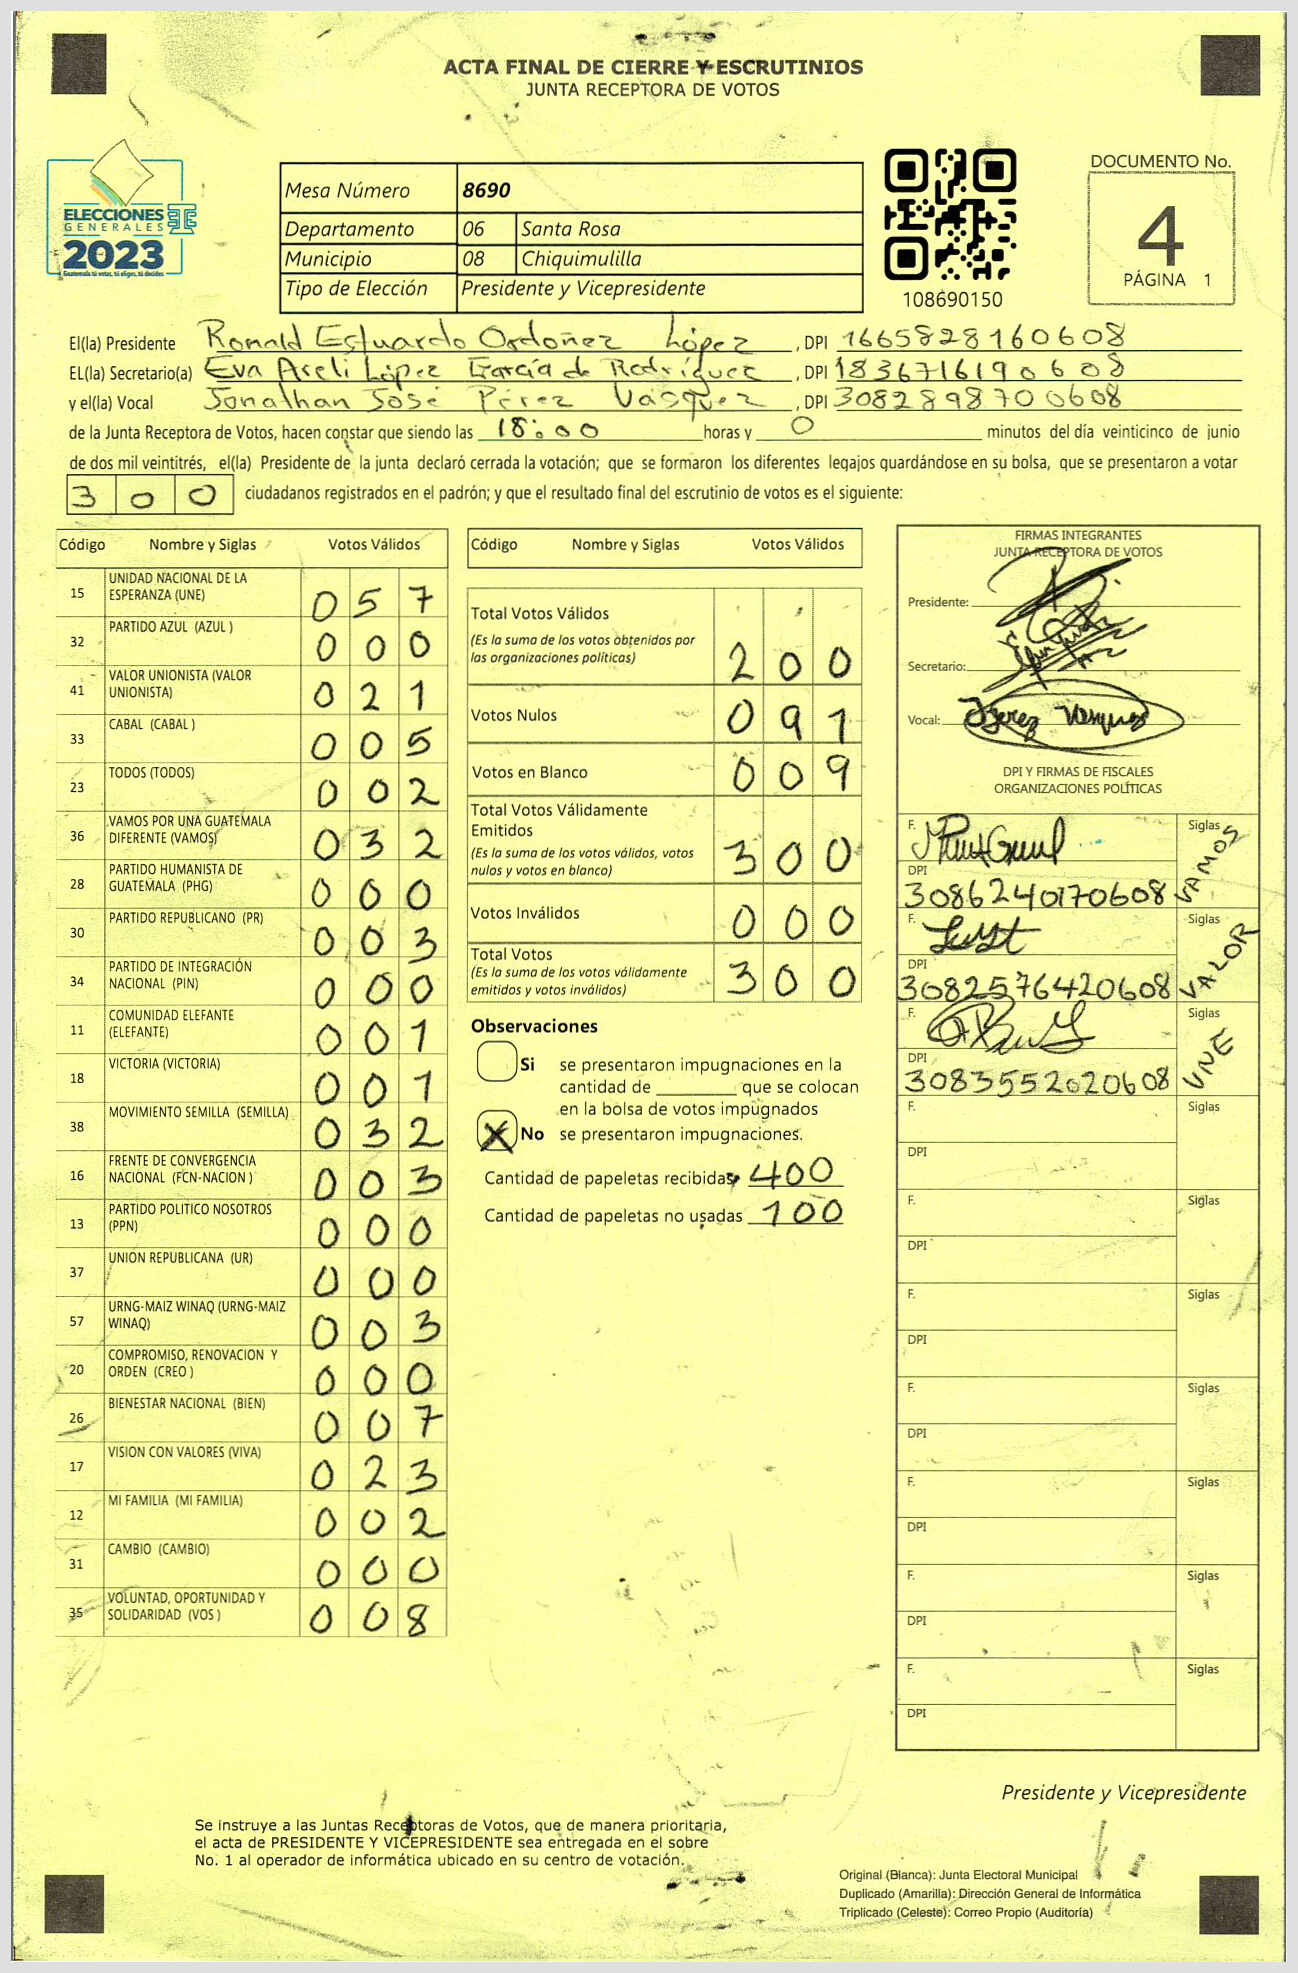 ACTA FINAL DE CIERRE Y ESCRUTINIOS
JUNTA RECEPTORA DE VOTOS
ELECCIONES
GENERALES
2023
Guatemala tú votas, tú eliges, tú decides
Mesa Número 8690
Departamento 06 Santa Rosa
Municipio 08 Chiquimulilla
Tipo de Elección Presidente y Vicepresidente
108690150
DOCUMENTO No.
4
PÁGINA 1
El(la) Presidente Ronald Estuardo Ordoñez López, DPI 1665828160608
EL(la) Secretario(a) Eva Areli López García de Rodríguez, DPI 1836716190608
y el(la) Vocal Jonathan José Pérez Vásquez, DPI 3082898700608
de la Junta Receptora de Votos, hacen constar que siendo las 18:00 horas y 0 minutos del día veinticinco de junio
de dos mil veintitrés, el(la) Presidente de la junta declaró cerrada la votación; que se formaron los diferentes legajos guardándose en su bolsa, que se presentaron a votar
300 ciudadanos registrados en el padrón; y que el resultado final del escrutinio de votos es el siguiente:
Código Nombre y Siglas Votos Válidos
15 UNIDAD NACIONAL DE LA ESPERANZA (UNE) 057
32 PARTIDO AZUL (AZUL ) 000
41 VALOR UNIONISTA (VALOR UNIONISTA) 021
33 CABAL (CABAL ) 005
23 TODOS (TODOS) 002
36 VAMOS POR UNA GUATEMALA DIFERENTE (VAMOS) 032
28 PARTIDO HUMANISTA DE GUATEMALA (PHG) 000
30 PARTIDO REPUBLICANO (PR) 003
34 PARTIDO DE INTEGRACIÓN NACIONAL (PIN) 000
11 COMUNIDAD ELEFANTE (ELEFANTE) 001
18 VICTORIA (VICTORIA) 001
38 MOVIMIENTO SEMILLA (SEMILLA) 032
16 FRENTE DE CONVERGENCIA NACIONAL (FCN-NACION ) 003
13 PARTIDO POLITICO NOSOTROS (PPN) 000
37 UNION REPUBLICANA (UR) 000
57 URNG-MAIZ WINAQ (URNG-MAIZ WINAQ) 003
20 COMPROMISO, RENOVACION Y ORDEN (CREO ) 000
26 BIENESTAR NACIONAL (BIEN) 007
17 VISION CON VALORES (VIVA) 023
12 MI FAMILIA (MI FAMILIA) 002
31 CAMBIO (CAMBIO) 000
35 VOLUNTAD, OPORTUNIDAD Y SOLIDARIDAD (VOS ) 008
Código Nombre y Siglas Votos Válidos
Total Votos Válidos
(Es la suma de los votos obtenidos por
las organizaciones políticas) 200
Votos Nulos 091
Votos en Blanco 009
Total Votos Válidamente
Emitidos
(Es la suma de los votos válidos, votos
nulos y votos en blanco) 300
Votos Inválidos 000
Total Votos
(Es la suma de los votos válidamente
emitidos y votos inválidos) 300
Observaciones
Si se presentaron impugnaciones en la
cantidad de ________ que se colocan
en la bolsa de votos impugnados
X No se presentaron impugnaciones.
Cantidad de papeletas recibidas 400
Cantidad de papeletas no usadas 100
FIRMAS INTEGRANTES
JUNTA RECEPTORA DE VOTOS
Presidente:
Secretario:
Vocal: Jperez Vasquez
DPI Y FIRMAS DE FISCALES
ORGANIZACIONES POLÍTICAS
F. Siglas VAMOS
DPI 3086240170608
F. Siglas VALOR
DPI 3082576420608
F. Siglas UNE
DPI 3083552020608
F. Siglas
DPI
F. Siglas
DPI
F. Siglas
DPI
F. Siglas
DPI
F. Siglas
DPI
F. Siglas
DPI
F. Siglas
DPI
Presidente y Vicepresidente
Se instruye a las Juntas Receptoras de Votos, que de manera prioritaria,
el acta de PRESIDENTE Y VICEPRESIDENTE sea entregada en el sobre
No. 1 al operador de informática ubicado en su centro de votación.
Original (Blanca): Junta Electoral Municipal
Duplicado (Amarilla): Dirección General de Informática
Triplicado (Celeste): Correo Propio (Auditoría)